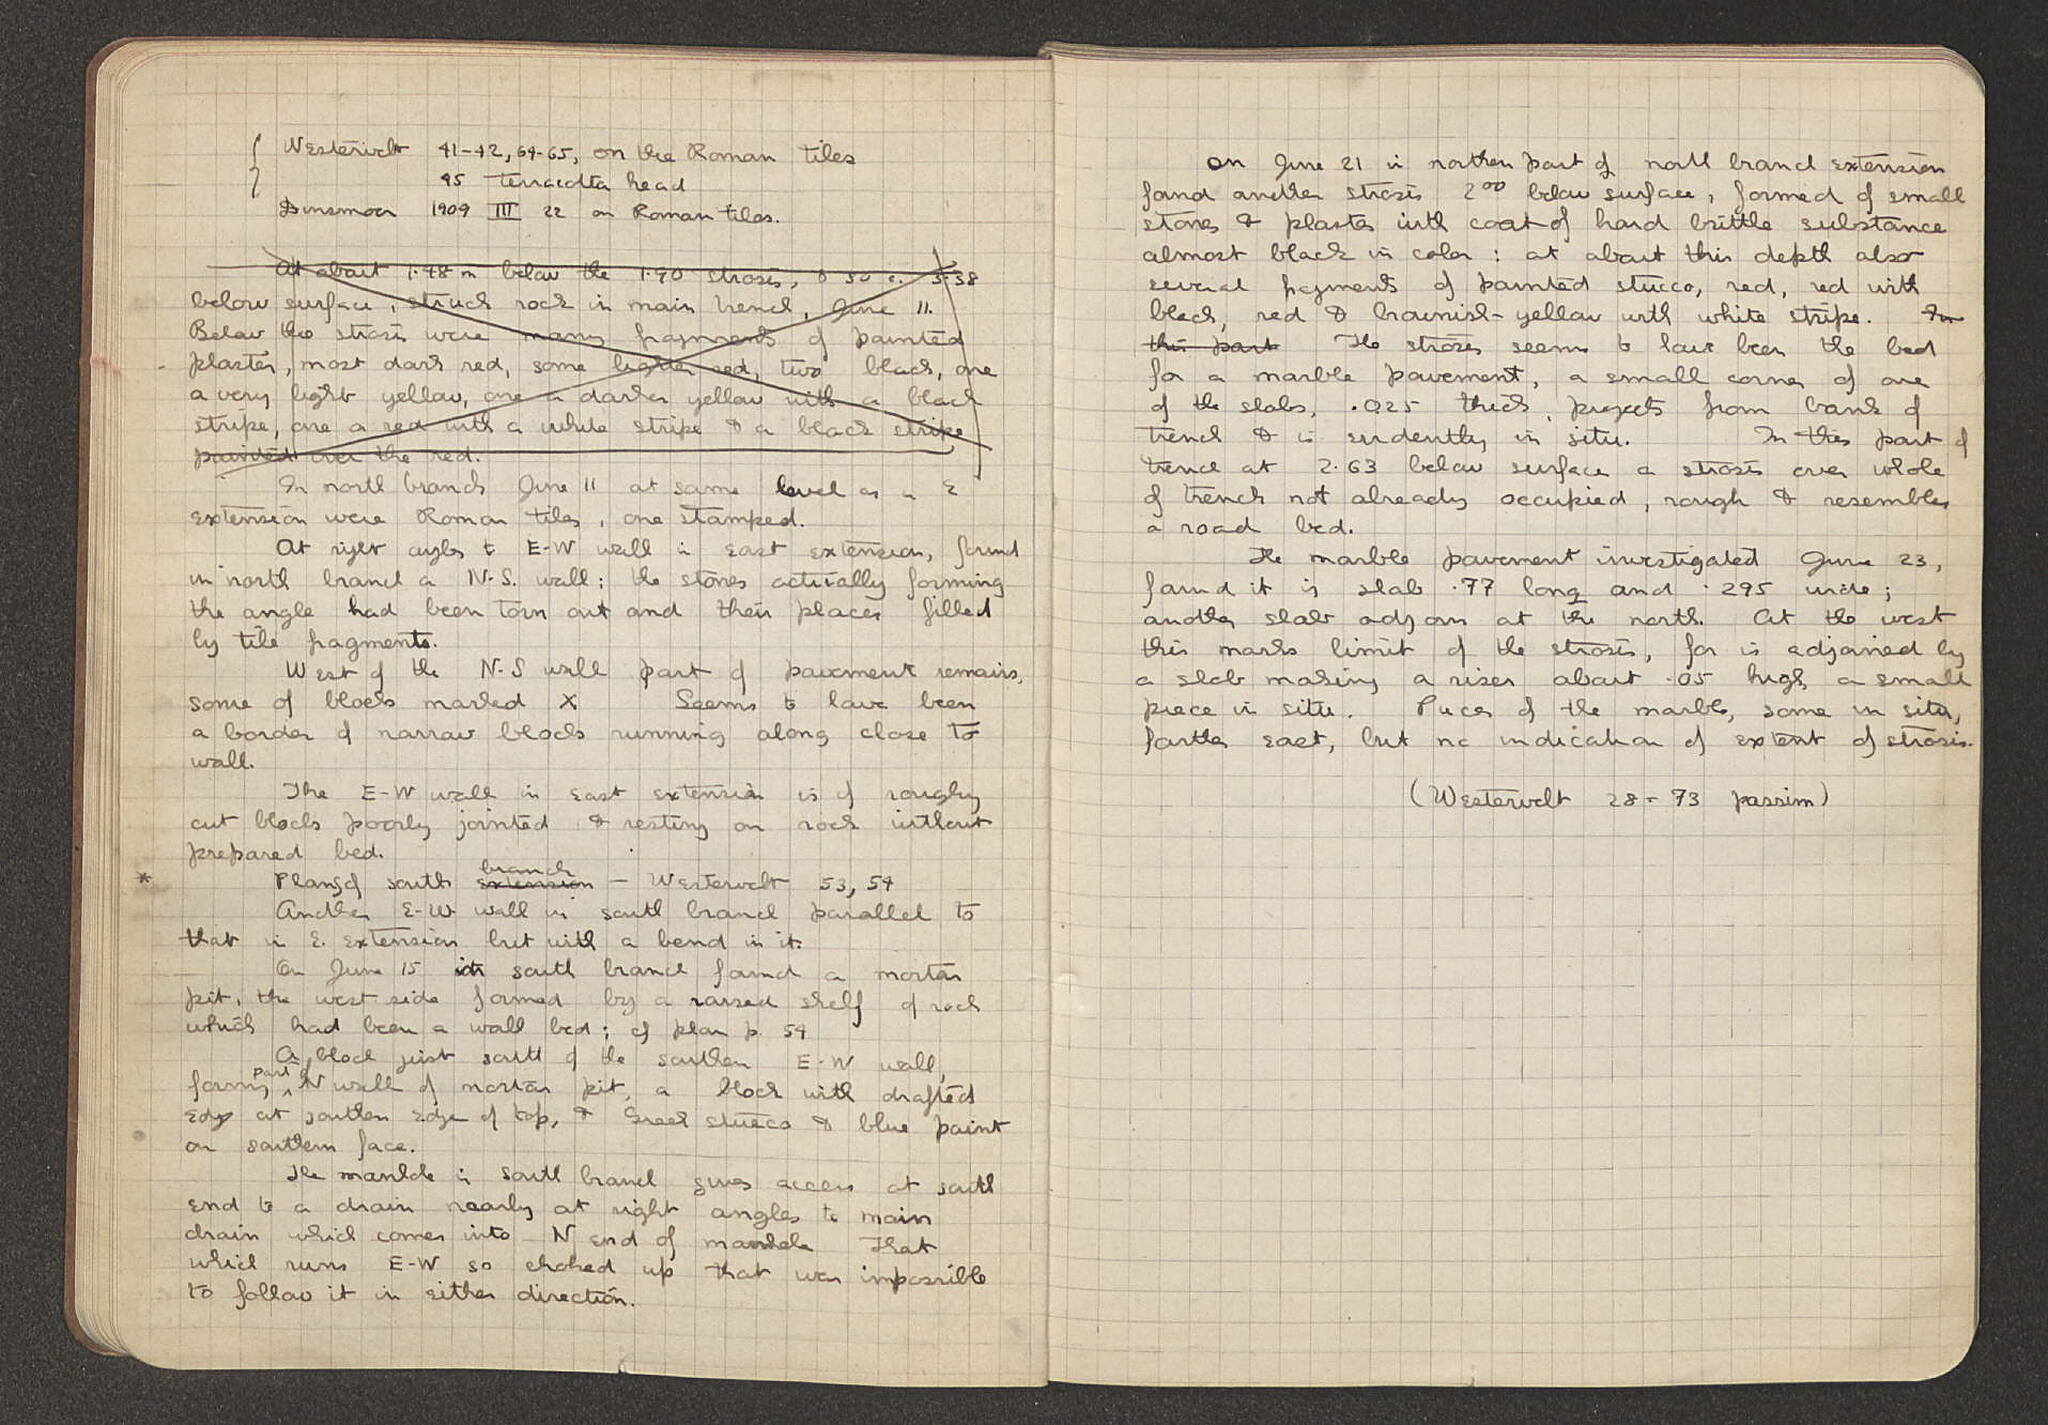 Westervelt 41-42, 64-65, on the Roman tiles
45 terracotta head
Dinsmoor 1909 III 22 on Roman tiles.
At about 1.48 m below the 1.90 strosis, 3.38
below surface, struck rock in main trench, June 11.
Below the strosis were many fragments of painted
plaster, most dark red, some lighter red, two black, one
a very light yellow, one a darker yellow with a black
stripe, one a red with a white stripe & a black stripe
painted over the red.
In north branch June 11 at same level as in E
extension were Roman tiles, one stamped.
At right angles to E-W wall in east extension, found
in north branch a N-S. wall; the stones actually forming
the angle had been torn out and their places filled
by tile fragments.
West of the N-S wall part of pavement remains,
some of blocks marked X Seems to have been
a border of narrow blocks running along close to
wall.
The E-W wall in east extension is of roughly
cut blocks poorly jointed & resting on rock without
prepared bed.
* Plans of south extension branch - Westervelt 53, 54
Another E-W wall in south branch parallel to
that in E. extension but with a bend in it.
On June 15 in south branch found a mortar
pit, the west side formed by a raised shelf of rock
which had been a wall bed; cf plan p. 54
A block just south of the southern E-W wall,
forming part of N wall of mortar pit, a block with drafted
edge at southern edge of top, & Greek stucco & blue paint
on southern face.
The manhole in south branch gives access at south
end to a drain nearly at right angles to main
drain which comes into N end of manhole That
which runs E-W so choked up that was impossible
to follow it in either direction.
On June 21 in northern part of north branch extension
found another strosis 2.00 below surface, formed of small
stones & plaster with coat of hard brittle substance
almost black in color; at about this depth also
several fragments of painted stucco, red, red with
black, red & brownish-yellow with white stripe. In
this part The strosis seems to have been the bed
for a marble pavement, a small corner of one
of the slabs, .025 thick, projects from bank of
trench & is evidently in situ. In this part of
trench at 2.63 below surface a strosis over whole
of trench not already occupied, rough & resembles
a road bed.
The marble pavement investigated June 23,
found it is slab .77 long and .295 wide;
another slab adjoins at the north. At the west
this marks limit of the strosis, for is adjoined by
a slab making a riser about .05 high, a small
piece in situ. Pieces of the marble, some in situ,
farther east, but no indication of extent of strosis.
(Westervelt 28-73 passim)